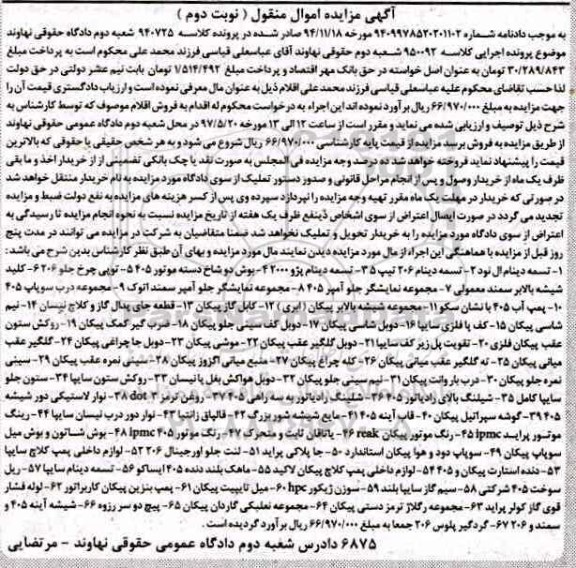 آگهی مزایده اموال منقول ( نوبت دوم )
به موجب دادنامه شماره ۹۴۰۹۹۷۸۵۲۰۲۰۱۱۰۲ مورخه ۹۴/۱۱/۱۸ صادر شده در پرونده کلاسه ۹۴۰۷۲۵ شعبه دوم دادگاه حقوقی نهاوند
موضوع پرونده اجرایی کلاسه ۹۵۰۰۹۲ شعبه دوم حقوقی نهاوند آقای عباسعلی قیاسی فرزند محمد علی محکوم است به پرداخت مبلغ
۳۰/۲۸۹/۸۴۳ تومان به عنوان اصل خواسته در حق بانک مهر اقتصاد و پرداخت مبلغ ۱/۵۱۴/۴۹۲ تومان بابت نیم عشر دولتی در حق دولت
لذا حسب تقاضای محکوم علیه عباسعلی قیاسی فرزند محمد علی اقلام ذیل به عنوان مال معرفی نموده است و ارزیاب دادگستری قیمت آن را
جهت مزایده به مبلغ ۶۶/۹۷۰/۰۰۰ ریال برآورد نموده اند این اجراء به درخواست محکوم له اقدام به فروش اقلام موصوف که توسط کارشناس به
شرح ذیل توصیف و ارزیابی شده می نماید و مقرر است از ساعت ۱۲ الی ۱۳ مورخه ۹۷/۵/۲۰ در محل شعبه دوم دادگاه عمومی حقوقی نهاوند
از طریق مزایده به فروش برسد مزایده از قیمت پایه کارشناسی ۶۶/۹۷۰/۰۰۰ ریال شروع می شود و به هر شخص حقیقی یا حقوقی که بالاترین
قیمت را پیشنهاد نماید فروخته خواهد شد ده درصد وجه مزایده فی المجلس به صورت نقد یا چک بانکی تضمینی از از خریدار اخذ و ما بقی
ظرف یک ماه از خریدار وصول و پس از انجام مراحل قانونی و صدور دستور تملیک از سوی دادگاه مورد مزایده به نام خریدار منتقل خواهد شد
در صورتی که خریدار در مهلت یک ماه مقرر تهیه وجه مزایده را نپردازد سپرده وی پس از کسر هزینه های مزایده به نفع دولت ضبط و مزایده
تجدید می گردد در صورت ایصال اعتراض از سوی اشخاص ذینفع ظرف یک هفته از تاریخ مزایده نسبت به نحوه انجام مزایده تا رسیدگی به
اعتراض از سوی دادگاه مورد مزایده را به خریدار تحویل و تملیک نخواهد شد ضمنا متقاضیان به شرکت در مزایده می توانند در مدت پنج
روز قبل از مزایده با هماهنگی این اجراء از مال مورد مزایده دیدن نمایند مال مورد مزایده و بهای آن طبق نظر کارشناس بدین شرح می باشد :
۱- تسمه دینام ال نود ۲- تسمه دینام ۲۰۶ تیپ ۵ ۳- تسمه دینام پژو ۲۰۰۰ ۴- بوش دو شاخ دسته موتور ۴۰۵ ۵- توپی چرخ جلو ۲۰۶ ۶- کلید
شیشه بالابر سمند معمولی ۷- مجموعه نمایشگر جلو آمپر ۴۰۵ ۸- مجموعه نمایشگر جلو آمپر سمند اتوک ۹- مجموعه درب سوپاپ ۴۰۵
۱۰- پمپ آب ۴۰۵ با نشان سکو ۱۱- مجموعه شیشه بالابر پیکان (ایری) ۱۲- کابل گاز پیکان ۱۳- قطعه جای پدال گاز و کلاج نیسان ۱۴- نیم
شاسی پیکان ۱۵- کف پا فلزی سایپا ۱۶- دوبل شاسی پیکان ۱۷- دوبل کف سینی جلو پیکان ۱۸- ضرب گیر کمک پیکان ۱۹- روکش ستون
عقب پیکان فلزی ۲۰- تقویت پل زیر کف سایپا ۲۱- دوبل گلگیر عقب پیکان ۲۲- موشی پیکان ۲۳- دوبل جا چراغی پیکان ۲۴- گلگیر عقب
میانی پیکان ۲۵- ته گلگیر عقب میانی پیکان ۲۶- کله چراغ پیکان ۲۷- منبع میانی اگزوز پیکان ۲۸- سینی نمره عقب پیکان ۲۹- سینی
نمره جلو پیکان ۳۰- درب بار وانت پیکان ۳۱- سر سینی جلو پیکان ۳۲- دوبل هواکش بغل پا نیسان ۳۳- روکش ستون سایپا ۳۴- ستون جلو
سایپا کامل ۳۵- شیلنگ بالای رادیاتور ۴۰۵ ۳۶- شلینگ رادیاتور به سه راهی ۴۰۵ ۳۷- روغن ترمز dot 3 ۳۸- نوار لاستیکی دور شیشه
۴۰۵ ۳۹- گوشه سپر اتیل پیکان ۴۰- قاب آینه ۴۰۵ ۴۱- مایع شیشه شور بزرگ ۴۲- قالپاق زانتیا ۴۳- نوار دور درب نیسان سایپا ۴۴- رینگ
موتسور پرایسد ipmc ۴۵- رنگ موتور پیکان reak ۴۶- یاتاقان ثابت و متحرک ۴۷- رنگ موتور ۴۰۵ ipmc ۴۸- بوش شاتون و بوش میل
سوپاپ پیکان ۴۹- سوپاپ دود و هوا پیکان استاندارد ۵۰- جا پلاکی پراید ۵۱- لنت جلو اورجینال ۲۰۶ ۵۲- لوازم داخلی پمپ کلاچ سایپا
۵۳- دنده استارت پیکان و ۴۰۵ ۵۴- لوازم داخلی پمپ کلاچ پیکان لاکید ۵۵- ماهک بلند دنده ۴۰۵ ایساکو ۵۶- تسمه دینام سایپا ۵۷- ریل
سوخت ۴۰۵ شرکتی ۵۸- سیم گاز سایپا بلند ۵۹- سوزن ژیکور hpc ۶۰- میل تایپیت پیکان ۶۱- پمپ بنزین پیکان کاربراتور ۶۲- لوله فشار
قوی گاز کولر پراید ۶۳- مجموعه رگلاژ ترمز دستی پیکان ۶۴- مجموعه نعلبکی گاردان پیکان ۶۵- پیچ دو سر رزوه ۶۶- شیشه آینه ۴۰۵ و
سمند و ۲۰۶ ۶۷- گردگیر پلوس ۲۰۶ جمعا به مبلغ ۶۶/۹۷۰/۰۰۰ ریال برآورد گردیده است .
۶۸۷۵ دادرس شعبه دوم دادگاه عمومی حقوقی نهاوند - مرتضایی